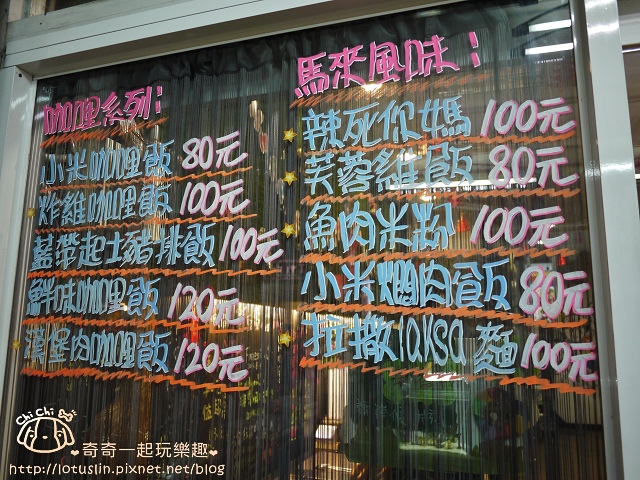 咖哩系列:
小米咖哩飯 80元
炸雞咖哩飯 100元
藍帶起士豬排飯 100元
鮮味咖哩飯 120元
漢堡肉咖哩飯 120元
馬來風味:
辣死你媽 100元
芙蓉雞飯 80元
魚肉米粉 100元
小米燜肉飯 80元
拉撒laksa麵 100元
Chi Chi
♥奇奇一起玩樂趣♥
http://lotuslin.pixnet.net/blog